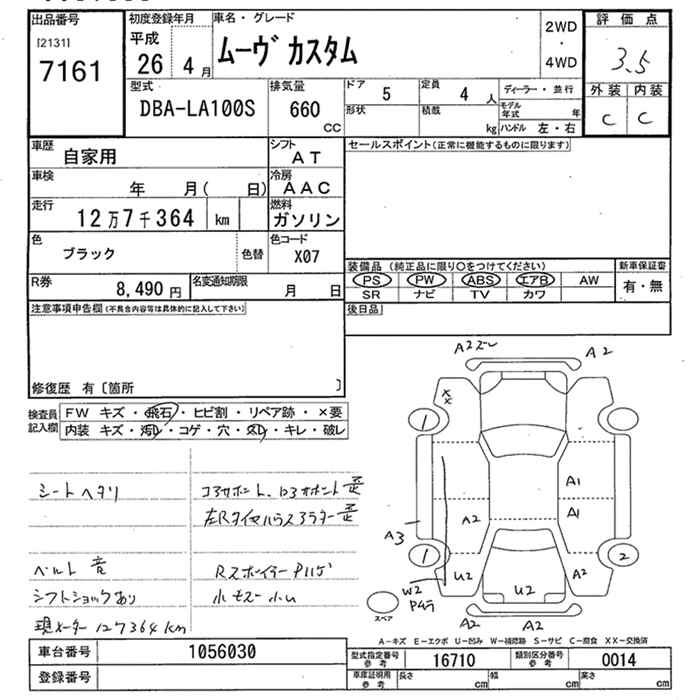 出品番号
[2131]
7161
初度登録年月
平成
26 4 月
車名・グレード
ムーヴ カスタム
2WD
・
4WD
評価点
3.5
外装 内装
C C
型式
DBA-LA100S
排気量
660
CC
ドア 5
定員 4 人
形状
積載 kg
ディーラー・並行
モデル年式 年
ハンドル 左・右
車歴 自家用
シフト AT
車検 年 月( 日)
冷房 AAC
走行 12万7千364 km
燃料 ガソリン
色 ブラック
色替
色コード X07
R券 8,490 円
名変通知期限 月 日
セールスポイント(正常に機能するものに限ります)
装備品(純正品に限り〇をつけてください)
新車保証書
PS PW ABS エアB AW
SR ナビ TV カワ
有・無
後日品
注意事項申告欄(不具合内容等は具体的に記入して下さい)
修復歴 有〔箇所 〕
検査員記入欄
FW キズ・飛石・ヒビ割・リペア跡・×要
内装 キズ・汚れ・コゲ・穴・スレ・キレ・破レ
シートヘタリ
コアサポート、ロアサポート歪
ベルト音
シフトショックあり
現メーター 127364km
RスポイラーP11.5
A2ズレ
A2
XX
1
A1
A1
A2
A3
1
2
U2
U2
A2
W2
Pムラ
A2
A2
スペア
A-キズ E-エクボ U-凹み W-補修跡 S-サビ C-腐食 XX-交換済
車台番号 1056030
登録番号
型式指定番号 参考 16710
類別区分番号 参考 0014
車庫証明用 参考 長さ cm 幅 cm 高さ cm